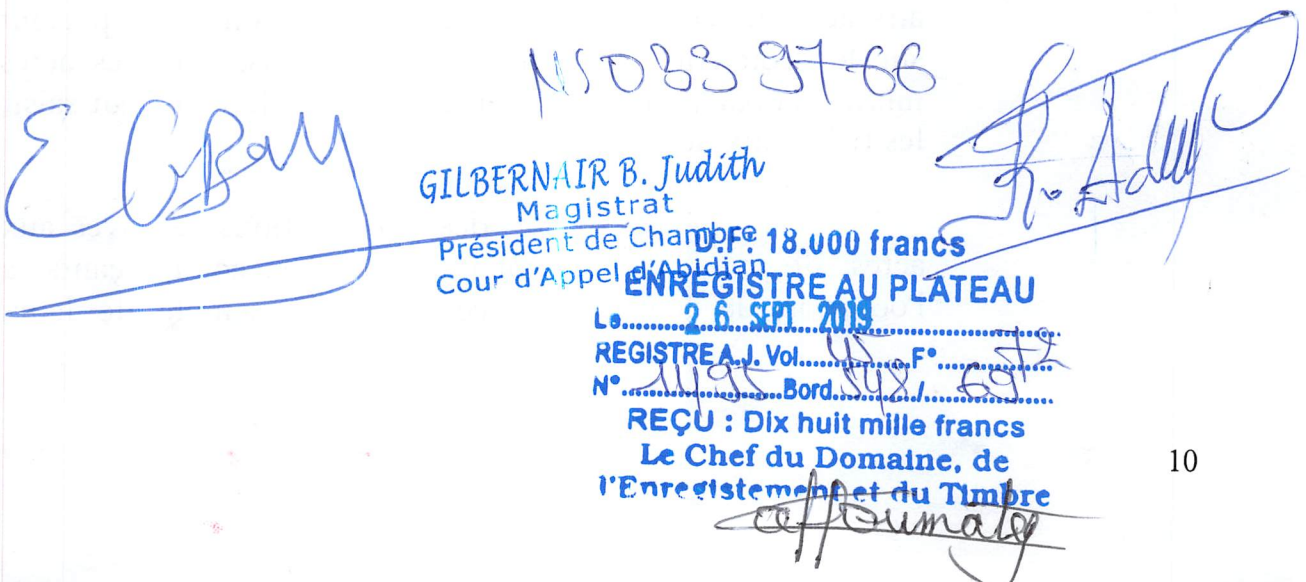 NS0339766
GILBERNAIR B. Judith
Magistrat
Président de Chambre
Cour d'Appel d'Abidjan
D.F: 18.000 francs
ENREGISTRE AU PLATEAU
Le 26 SEPT 2019
REGISTRE A.J. Vol. 45 F° 72
N° 1495 Bord. 548 / 69
REÇU : Dix huit mille francs
Le Chef du Domaine, de
l'Enregistement et du Timbre
10